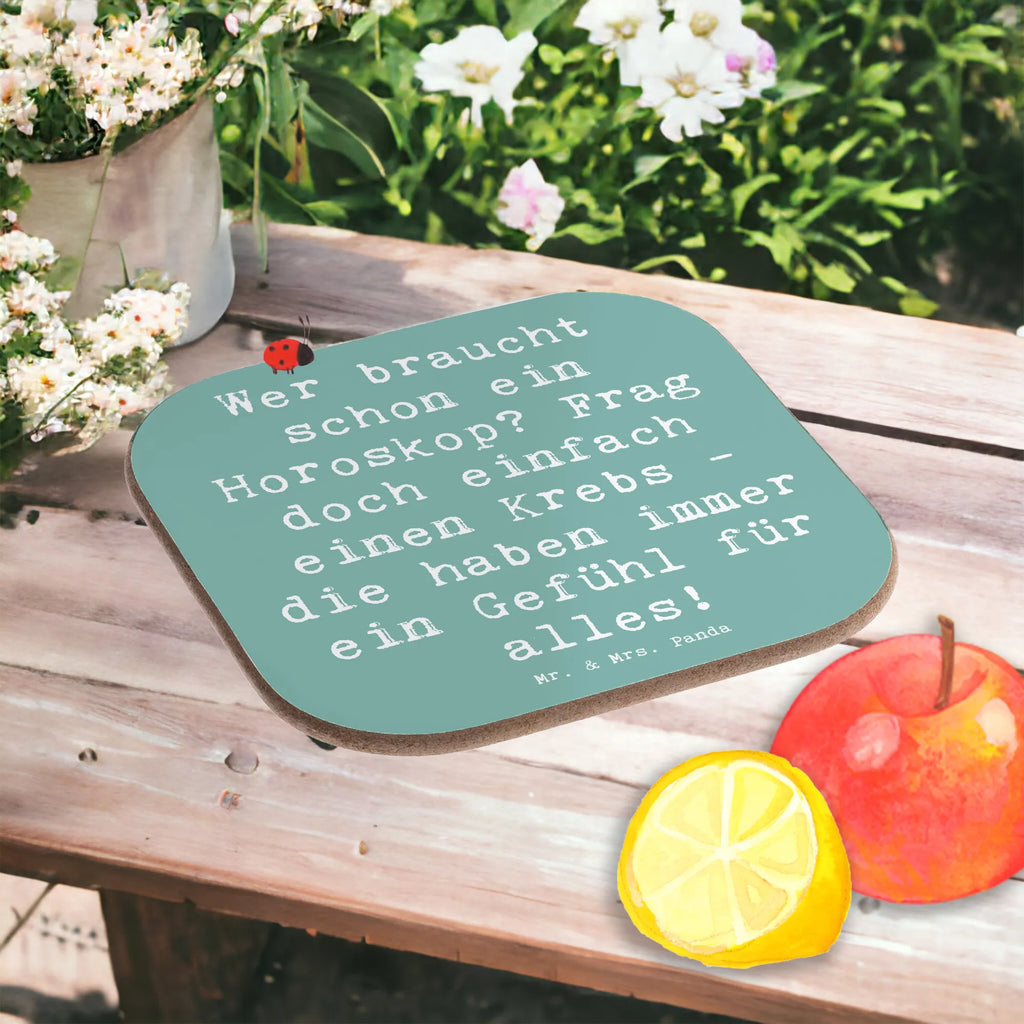 Wer braucht
schon ein
Horoskop? Frag
doch einfach
einen Krebs –
die haben immer
ein Gefühl für
alles!
Mr. & Mrs. Panda